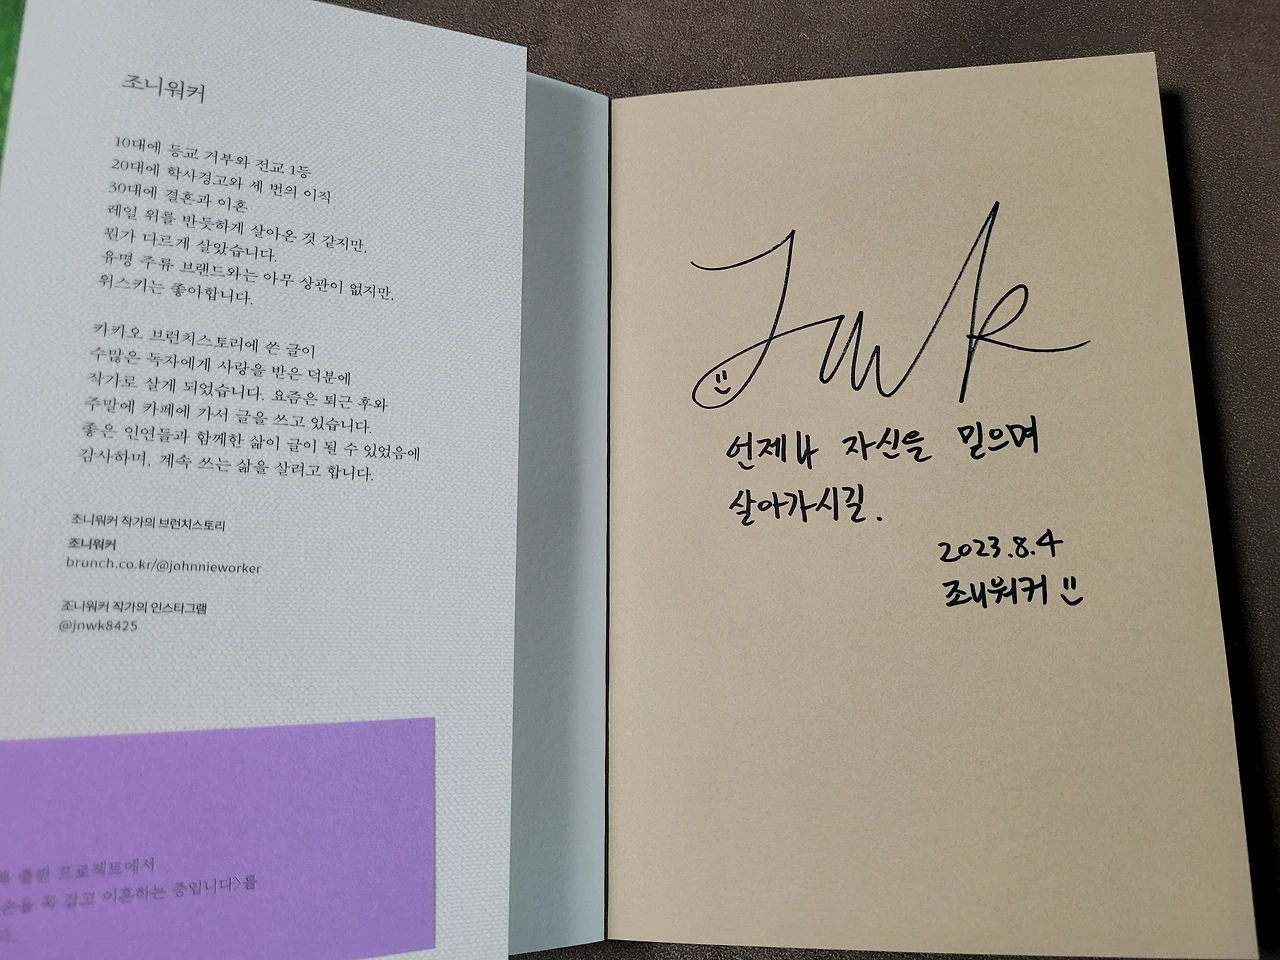 조니워커
10대에 등교 거부와 전교 1등
20대에 학사경고와 세 번의 이직
30대에 결혼과 이혼
레일 위를 반듯하게 살아온 것 같지만,
뭔가 다르게 살았습니다.
유명 주류 브랜드와는 아무 상관이 없지만,
위스키는 좋아합니다.
카카오 브런치스토리에 쓴 글이
수많은 독자에게 사랑을 받은 덕분에
작가로 살게 되었습니다. 요즘은 퇴근 후와
주말에 카페에 가서 글을 쓰고 있습니다.
좋은 인연들과 함께한 삶이 글이 될 수 있었음에
감사하며, 계속 쓰는 삶을 살려고 합니다.
조니워커 작가의 브런치스토리
조니워커
brunch.co.kr/@johnnieworker
조니워커 작가의 인스타그램
@jnwk8425
출판 프로젝트에서
손을 꼭 잡고 이혼하는 중입니다>를
다.
Jnwk
언제나 자신을 믿으며
살아가시길.
2023.8.4
조니워커